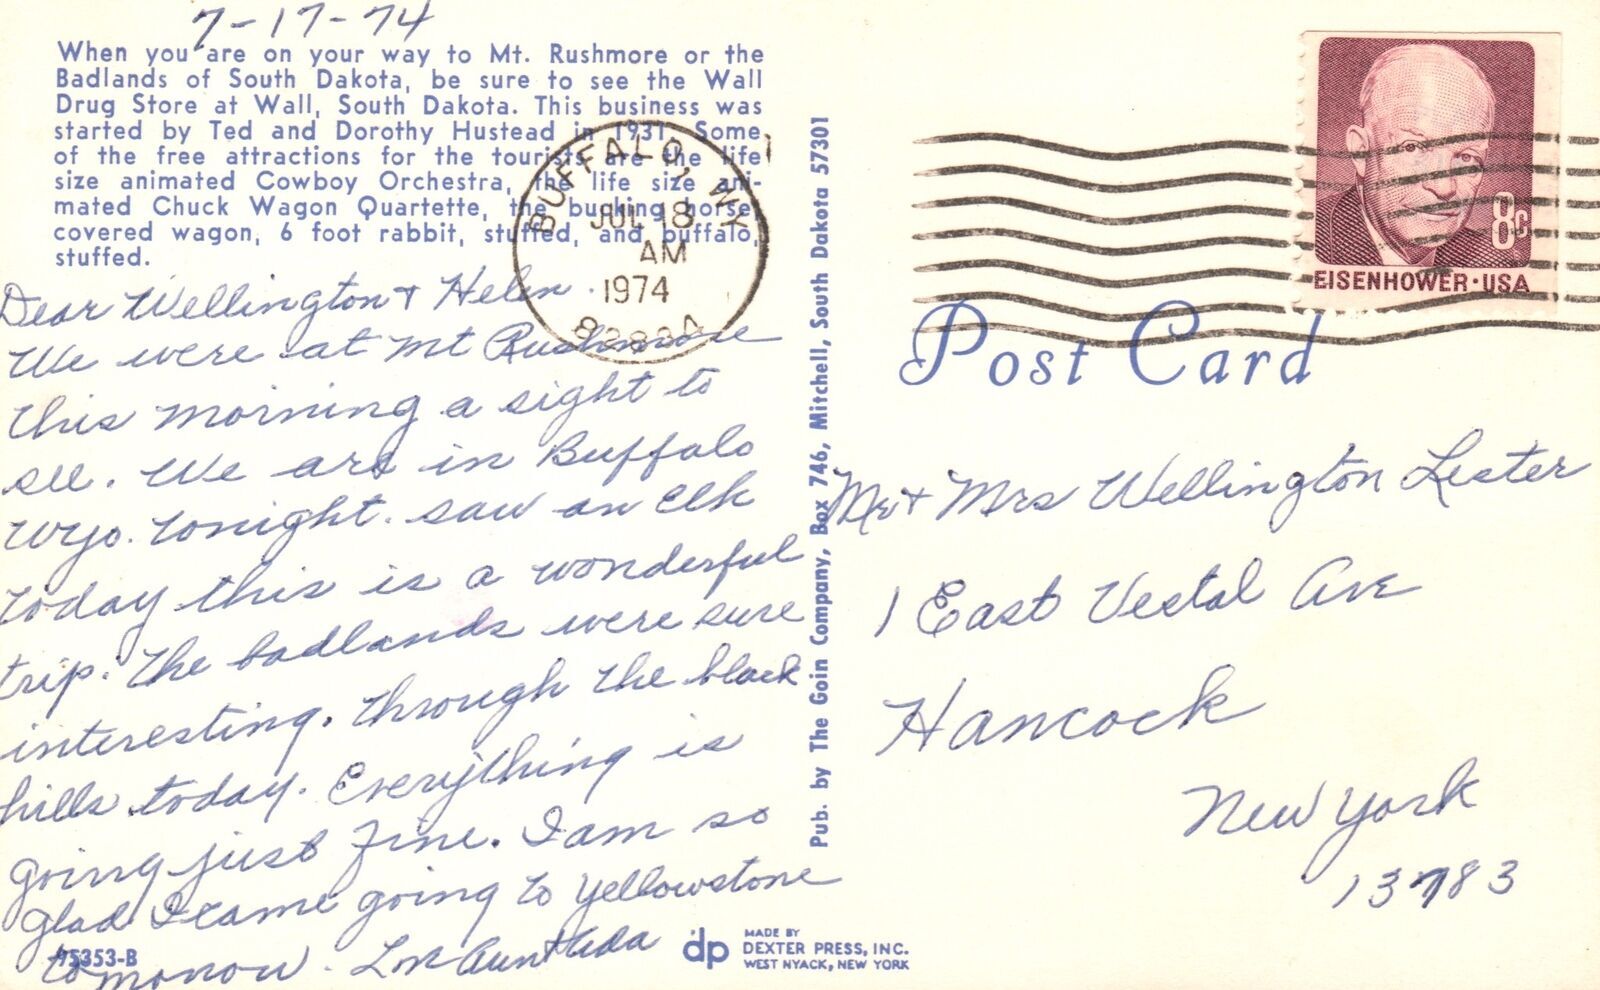 7-17-74
When you are on your way to Mt. Rushmore or the
Badlands of South Dakota, be sure to see the Wall
Drug Store at Wall, South Dakota. This business was
started by Ted and Dorothy Hustead in 1931. Some
of the free attractions for the tourists are the life
size animated Cowboy Orchestra, the life size ani-
mated Chuck Wagon Quartette, the bucking horse,
covered wagon, 6 foot rabbit, stuffed, and buffalo,
stuffed.
Dear Wellington + Helen.
We were at Mt Rushmore
this morning a sight to
see. We are in Buffalo
Wyo. tonight. saw an Elk
today this is a wonderful
trip. The badlands were sure
interesting. through the black
hills today. Everything is
going just fine. I am so
glad I came going to Yellowstone
tomorrow. Love Aunt
75353-B
BUFFALO, WY
JUL 18
AM
1974
Pub. by The Goin Company, Box 746, Mitchell, South Dakota 57301
dp
MADE BY
DEXTER PRESS, INC.
WEST NYACK, NEW YORK
8c
EISENHOWER·USA
Post Card
Mr + Mrs Wellington Lester
1 East Vestal Ave
Hancock
New York
13783